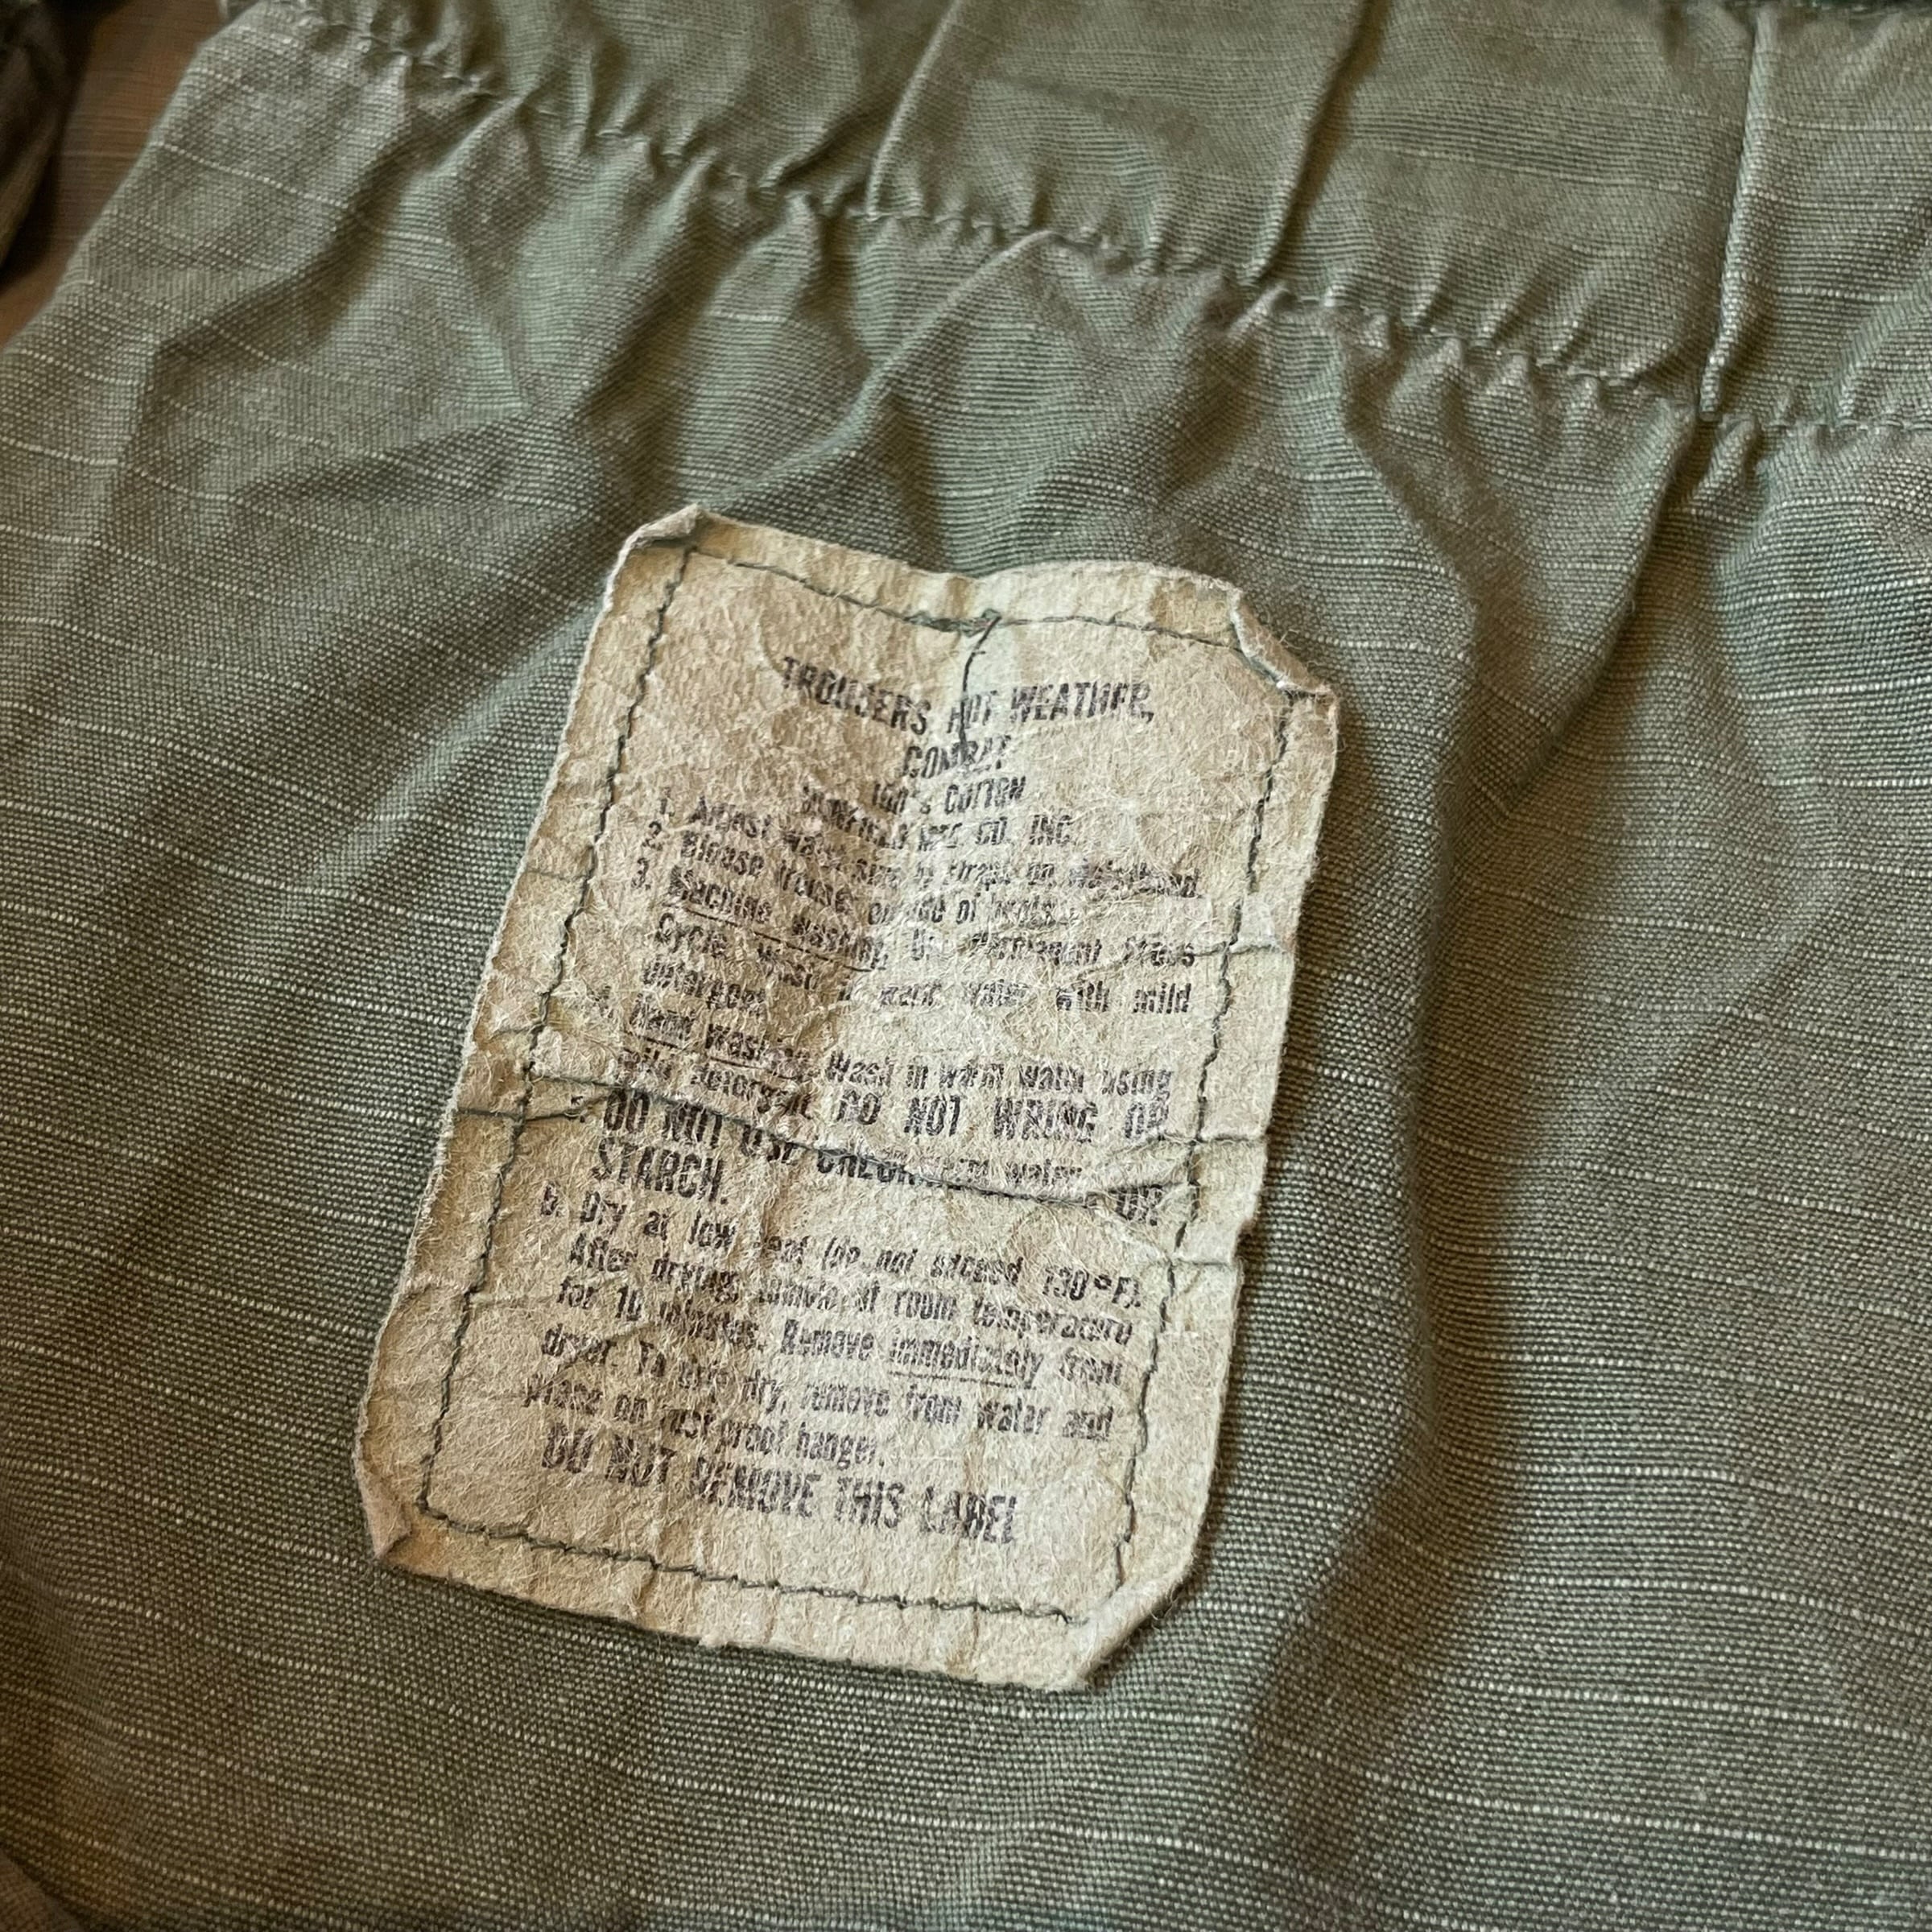 TROUSERS HOT WEATHER,
COMBAT
100% COTTON
MFG CO. INC.
1. Adjust waist size by straps on waistband.
2. Blouse trouser outside of boots.
3. Machine Washing. Use Permanent Press
Cycle, wash in warm water with mild
detergent.
4. Hand washing. Wash in warm water using
mild detergent. DO NOT WRING OR
5. DO NOT USE warm water OR
STARCH.
6. Dry at low heat (do not exceed 130°F).
After drying, tumble at room temperature
for 10 minutes. Remove immediately from
dryer. To drip dry, remove from water and
place on rust proof hanger.
DO NOT REMOVE THIS LABEL